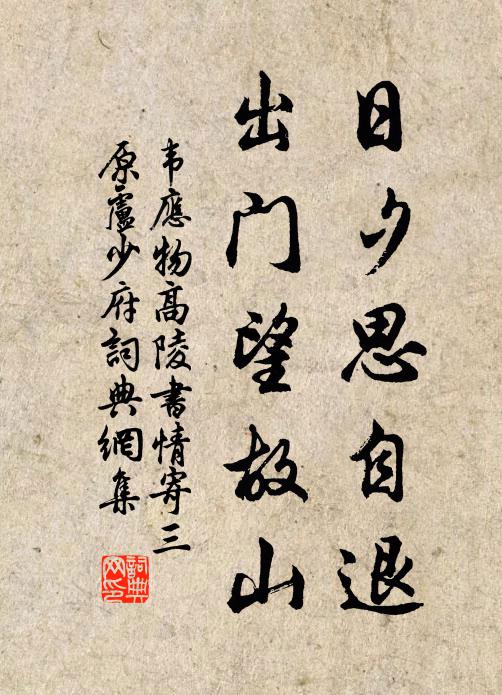 日夕思自退
出门望故山
韦應物高陵書情寄三
原盧少府詞典網集
詞典
网印